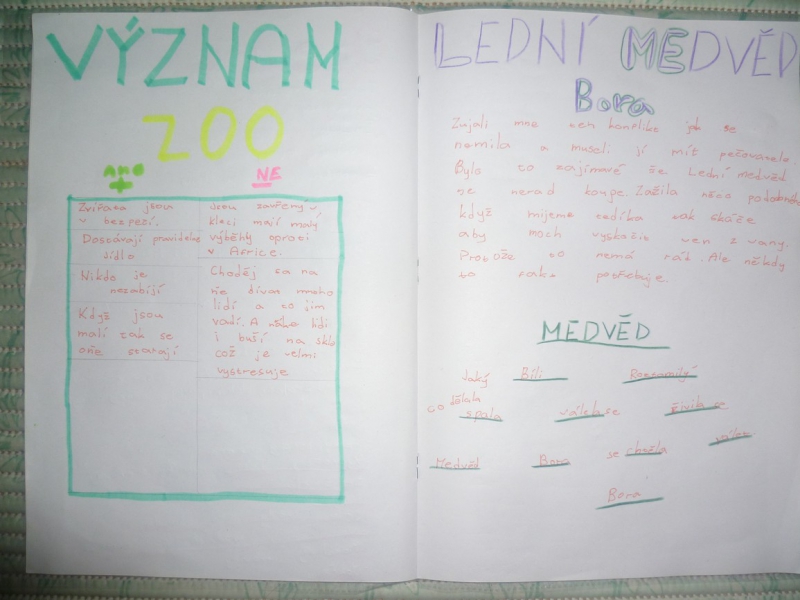 VÝZNAM
ZOO
ANO
+
NE
—
Zvířata jsou
v bezpečí.
Dostávají pravidelně
jídlo
Nikdo je
nezabíjí
Když jsou
malí tak se
o ně starají
Jsou zavřený v
kleci mají malý
výběhy oproti
v Africe.
Choděj sa na
ně dívat mnoho
lidí a to jim
vadí. A lidi
i buší na sklo
což je velmi
vystresuje
LEDNÍ MEDVĚD
Bora
Zujali mne ten konflikt jak se
nemila a museli jí mít pečovatele.
Bylo to zajímavé že Lední medvěd
se nerad koupe. Zažila něco podobného
když mijeme tak skáče
aby moch vyskočit ven z vany.
Protože to nemá rát. Ale někdy
to potřebuje.
MEDVĚD
Jaký Bílí Roztomilý
co dělala spala válela se živila se
válet
Medvěd Bora se chovála
Bora